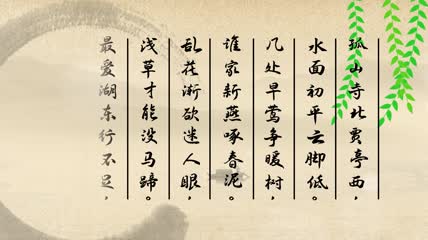 孤山寺北贾亭西，
水面初平云脚低。
几处早莺争暖树，
谁家新燕啄春泥。
乱花渐欲迷人眼，
浅草才能没马蹄。
最爱湖东行不足，